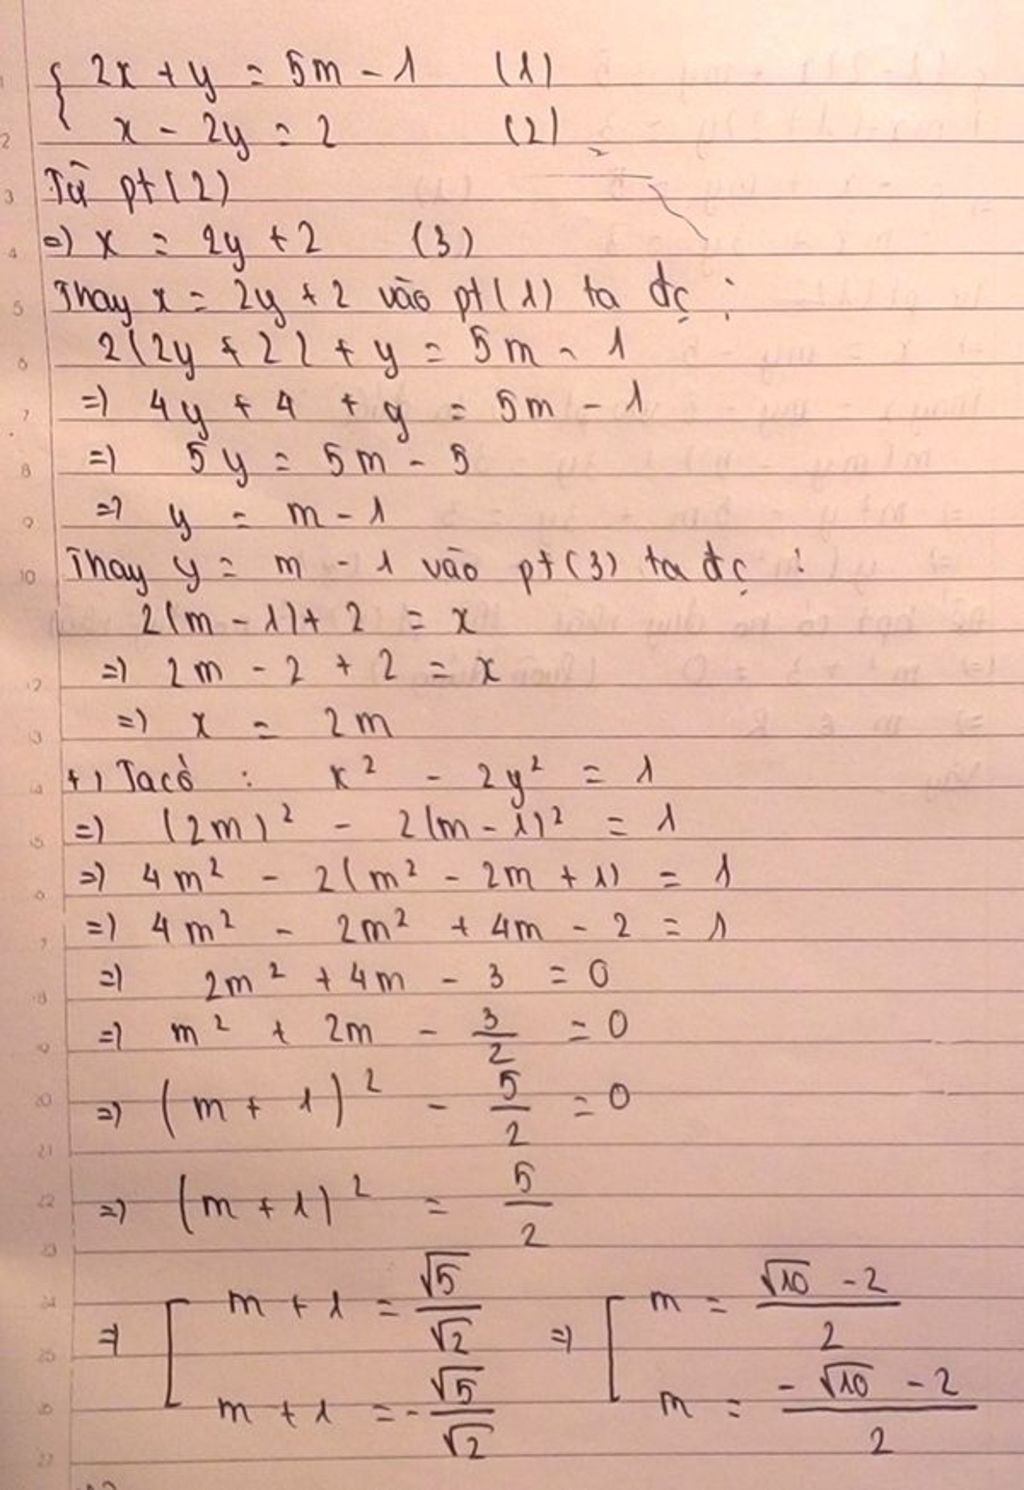 { 2x + y = 5m - 1 (1)
x - 2y = 2 (2)
Từ pt(2)
=) x = 2y + 2 (3)
Thay x = 2y + 2 vào pt(1) ta đc :
2(2y + 2) + y = 5m - 1
=) 4y + 4 + y = 5m - 1
=) 5y = 5m - 5
=) y = m - 1
Thay y = m - 1 vào pt(3) ta đc :
2(m - 1) + 2 = x
=) 2m - 2 + 2 = x
=) x = 2m
+) Ta có : x² - 2y² = 1
=) (2m)² - 2(m - 1)² = 1
=) 4m² - 2(m² - 2m + 1) = 1
=) 4m² - 2m² + 4m - 2 = 1
=) 2m² + 4m - 3 = 0
=) m² + 2m - 3/2 = 0
=) (m + 1)² - 5/2 = 0
=) (m + 1)² = 5/2
=) [ m + 1 = √5/√2 =) [ m = (√10 - 2)/2
m + 1 = -√5/√2 m = (-√10 - 2)/2